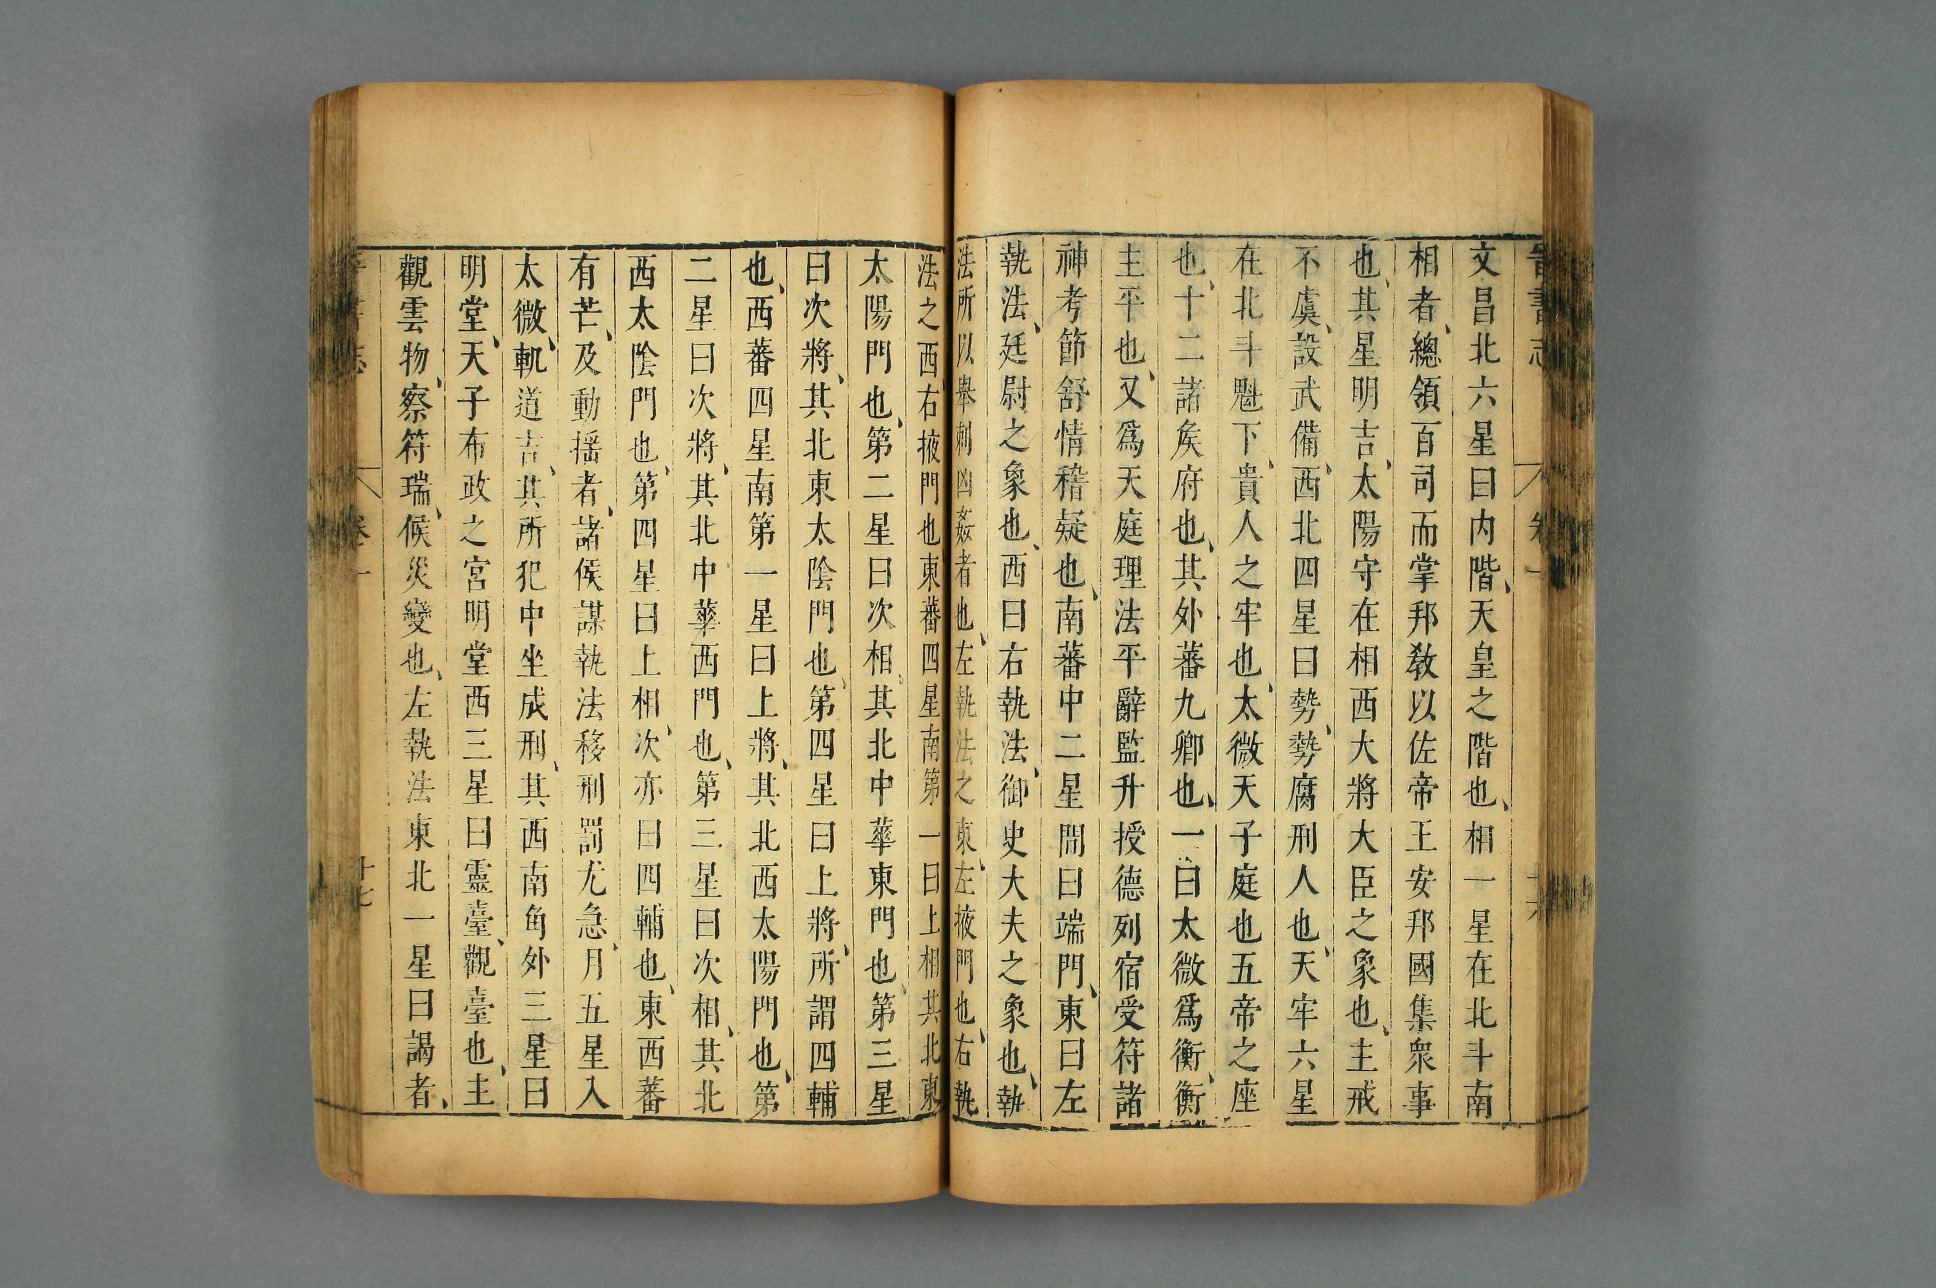 晉書志
卷一
文昌北六星曰内階、天皇之階也、相一星在北斗南
相者、總領百司而掌邦教以佐帝王安邦國集衆事
也、其星明吉、太陽守在相西大將大臣之象也、主戒
不虞、設武備、西北四星曰勢、勢腐刑人也、天牢六星
在北斗魁下、貴人之牢也、太微天子庭也五帝之座
也、十二諸矦府也、其外蕃九卿也、一曰太微爲衡、衡
主平也、又爲天庭理法平辭監升授德列宿受符諸
神考節舒情稽疑也、南蕃中二星間曰端門、東曰左
執法、廷尉之象也、西曰右執法、御史大夫之象也、執
法所以舉刺凶姦者也、左執法之東、左掖門也、右執
法之西、右掖門也東蕃四星南第一曰上相其北東
太陽門也、第二星曰次相、其北中華東門也、第三星
曰次將、其北東太陰門也、第四星曰上將、所謂四輔
也、西蕃四星南第一星曰上將、其北西太陽門也、第
二星曰次將、其北中華西門也、第三星曰次相、其北
西太陰門也、第四星曰上相、次亦曰四輔也、東西蕃
有芒、及動揺者、諸侯謀執法移刑罰尤急、月五星入
太微、軌道吉、其所犯中坐成刑、其西南角外三星曰
明堂、天子布政之宮明堂西三星曰靈臺、觀臺也、主
觀雲物、察符瑞、候災變也、左執法東北一星曰謁者、
書志
卷一
十七